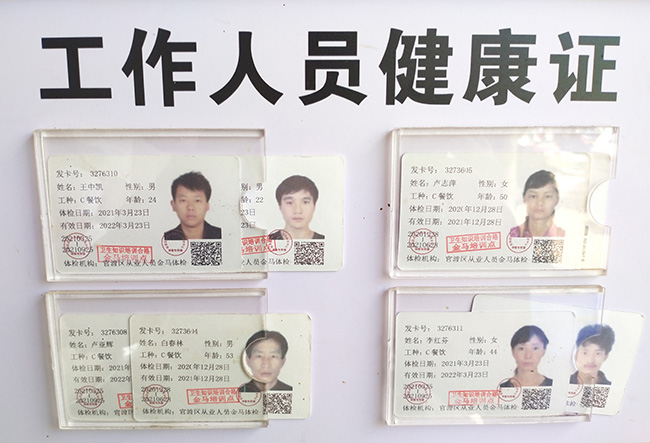 工作人员健康证
发卡号: 3276310
姓名: 王中凯 性别: 男
工种: C 餐饮 年龄: 24
体检日期: 2021年3月23日
有效日期: 2022年3月23日
20210925
卫生知识培训合格
金马培训点
体检机构: 官渡区从业人员金马体检
男
22
23日
23日
人员金马体检
发卡号:
姓名: 卢志萍 性别: 女
工种: C 餐饮 年龄: 50
体检日期: 2020年12月28日
有效日期: 2021年12月28日
20201228
20210925
卫生知识培训合格
金马培训点
体检机构: 官渡区从业人员金马体检
发卡号: 3276308
姓名: 卢亚辉
工种: C 餐饮
体检日期: 2021
有效日期: 2022
20210925
体检机构:
发卡号:
姓名: 白春林 性别: 男
工种: C 餐饮 年龄: 53
体检日期: 2020年12月28日
有效日期: 2021年12月28日
卫生知识培训合格
金马培训点
体检机构: 官渡区从业人员金马体检
发卡号: 3276311
姓名: 李红芬 性别: 女
工种: C 餐饮 年龄: 44
体检日期: 2021年3月23日
有效日期: 2022年3月23日
20210925
卫生知识培训合格
金马培训点
体检机构: 官渡区从业人员金马体检